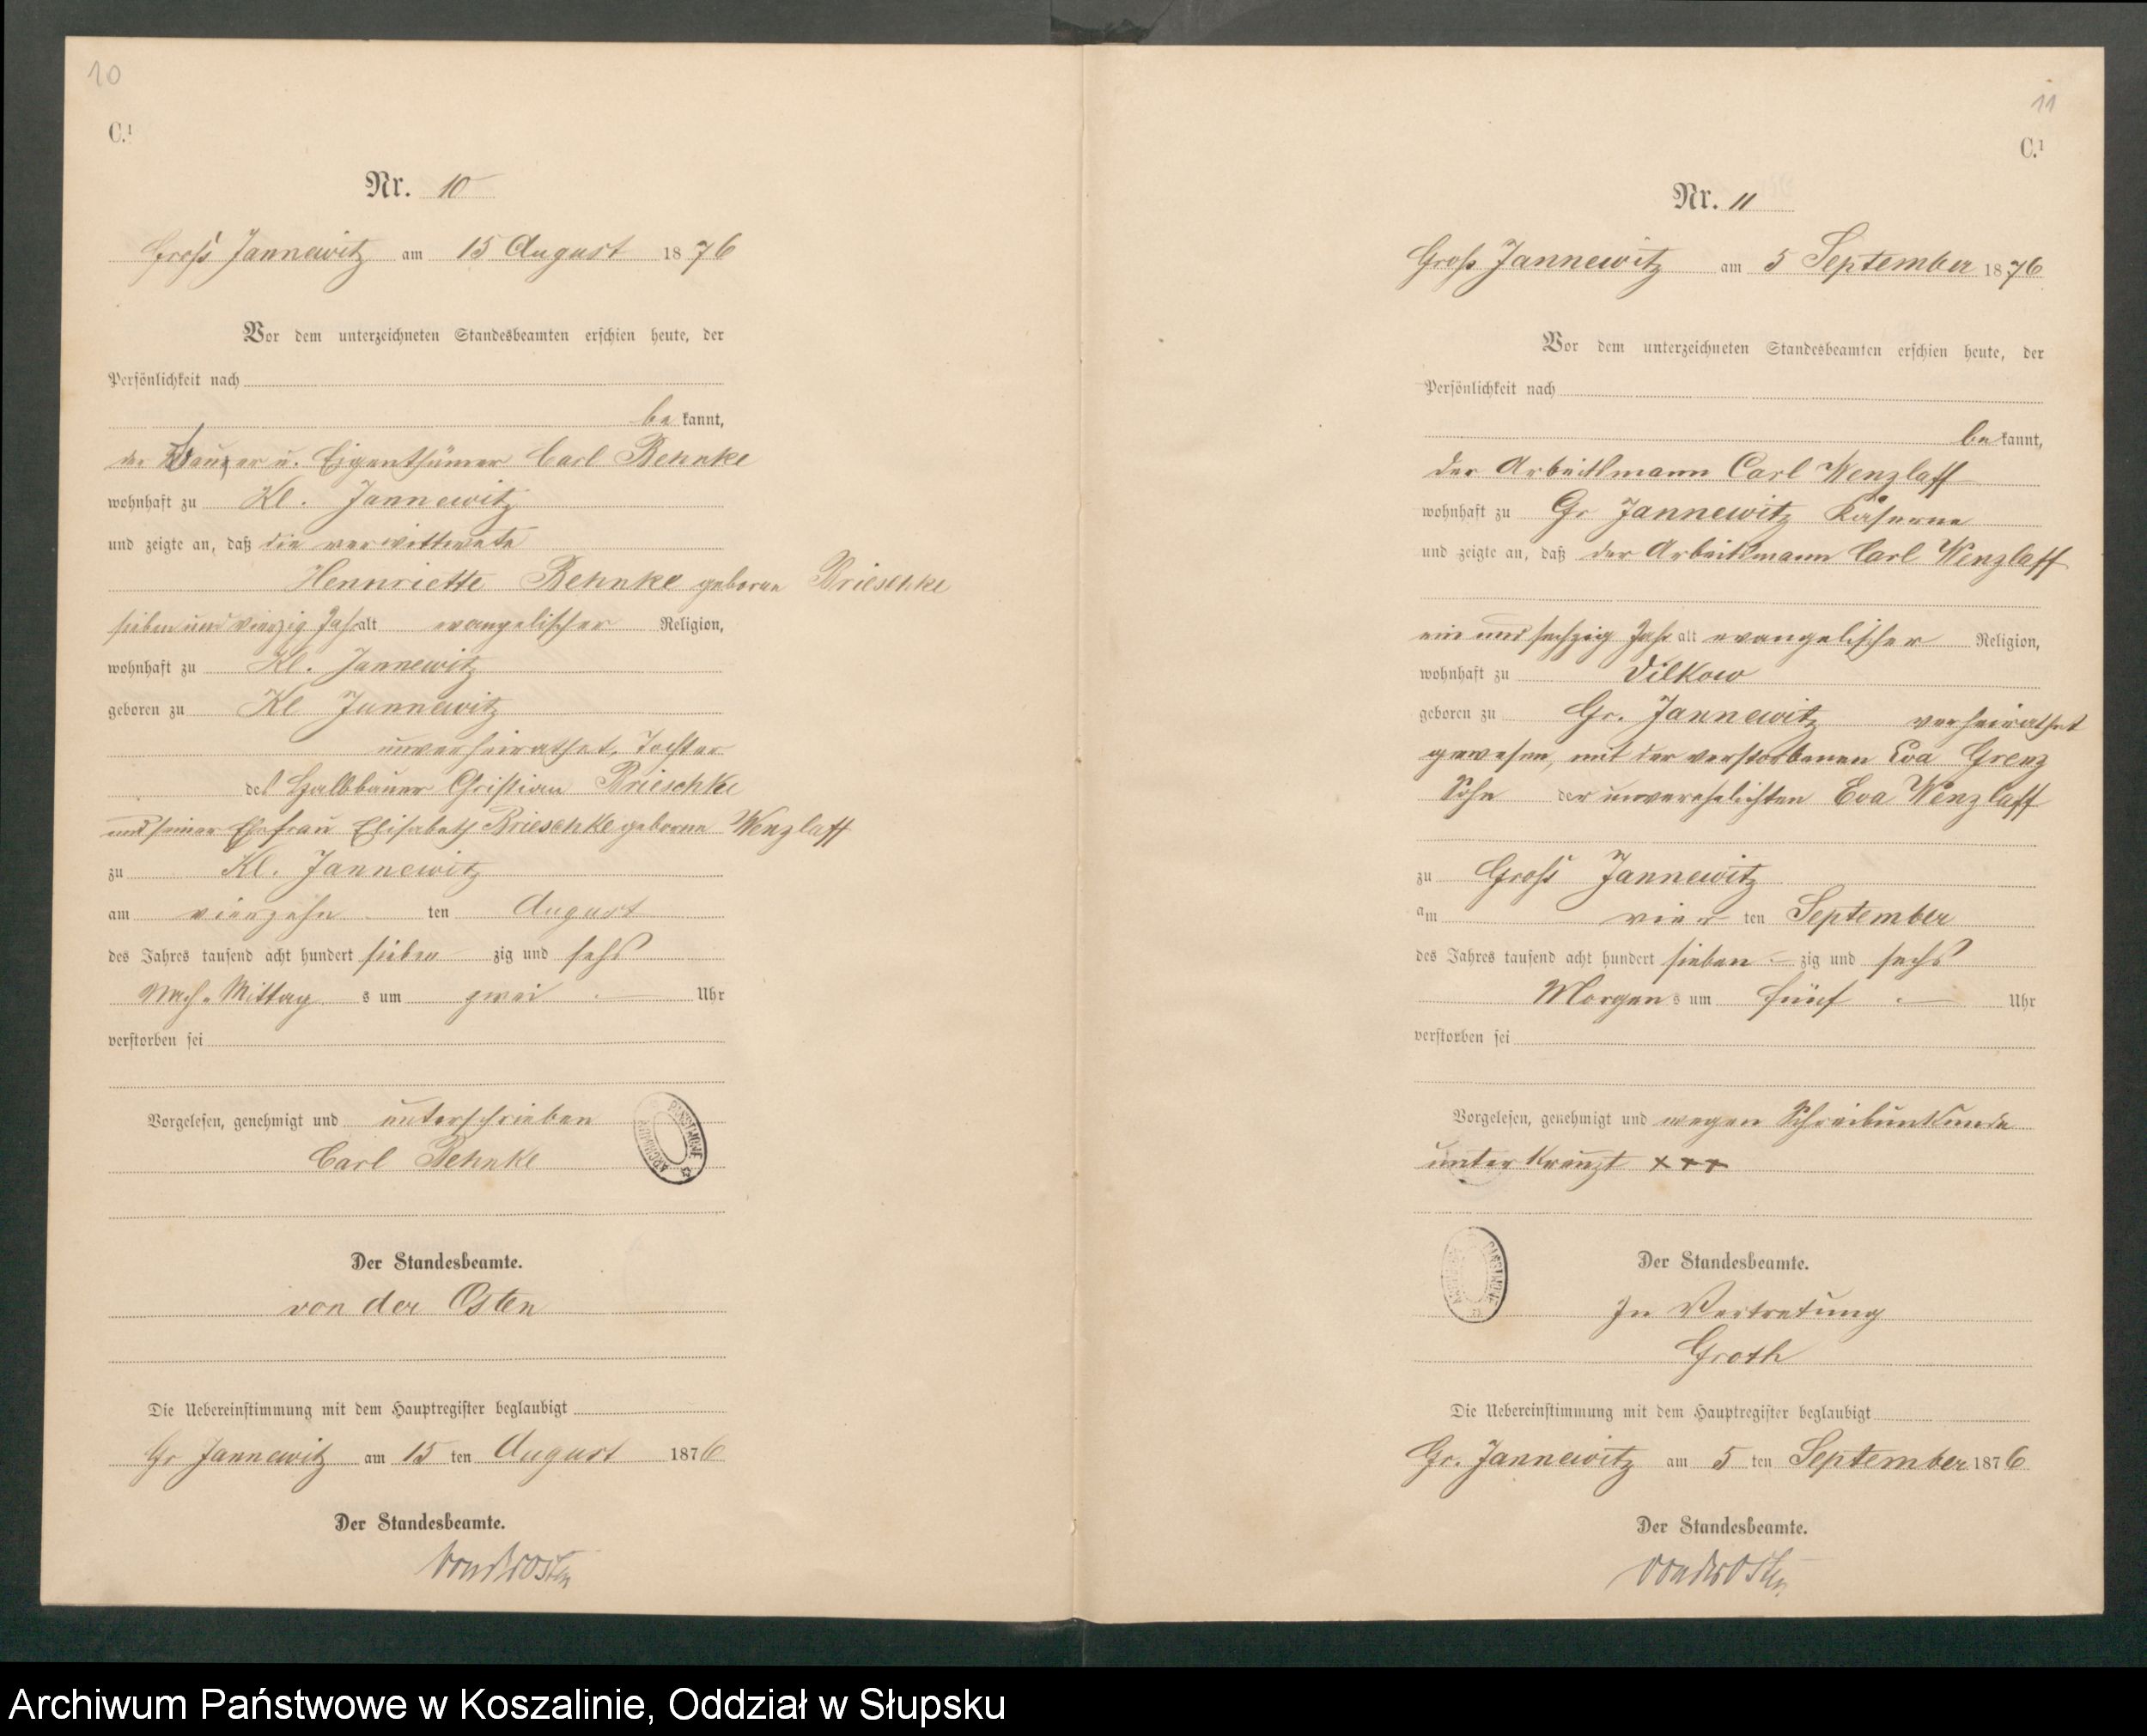 10
C.¹
Nr. 10
Gross Jannewitz am 15 August 1876
Vor dem unterzeichneten Standesbeamten erschien heute, der
Persönlichkeit nach
be kannt,
der Bauer u. Eigenthümer Carl Behnke
wohnhaft zu Kl. Jannewitz
und zeigte an, daß die verwittwete
Hennriette Behnke geborne Brieschke
sieben und vierzig Jahr alt evangelischer Religion,
wohnhaft zu Kl. Jannewitz
geboren zu Kl Jannewitz
unverheirathet, Tochter
des Halbbauer Christian Brieschke
und seiner Ehefrau Elisabeth Brieschke geborne Wenzlaff
zu Kl. Jannewitz
am vierzehn ten August
des Jahres tausend acht hundert sieben zig und sechs
Nach-Mittag s um zwei Uhr
verstorben sei
Vorgelesen, genehmigt und unterschrieben
Carl Behnke
ARCHIWUM PAŃSTWOWE
Der Standesbeamte.
von der Osten
Die Uebereinstimmung mit dem Hauptregister beglaubigt
Gr Jannewitz am 15 ten August 1876
Der Standesbeamte.
von der Osten
11
C.¹
Nr. 11
Gross Jannewitz am 5 September 1876
Vor dem unterzeichneten Standesbeamten erschien heute, der
Persönlichkeit nach
be kannt,
der Arbeitsmann Carl Wenzlaff
wohnhaft zu Gr Jannewitz Kaserne
und zeigte an, daß der Arbeitsmann Carl Wenzlaff
ein und sechzig Jahr alt evangelischer Religion,
wohnhaft zu Vilkow
geboren zu Gr. Jannewitz verheirathet
gewesen, mit der verstorbenen Eva Grenz
Sohn der unverehelichten Eva Wenzlaff
zu Gross Jannewitz
am vier ten September
des Jahres tausend acht hundert sieben zig und sechs
Morgen s um fünf Uhr
verstorben sei
Vorgelesen, genehmigt und wegen Schreibunkunde
unter kreuzt +++
Der Standesbeamte.
In Vertretung
Groth
Die Uebereinstimmung mit dem Hauptregister beglaubigt
Gr. Jannewitz am 5 ten September 1876
Der Standesbeamte.
von der Osten
Archiwum Państwowe w Koszalinie, Oddział w Słupsku